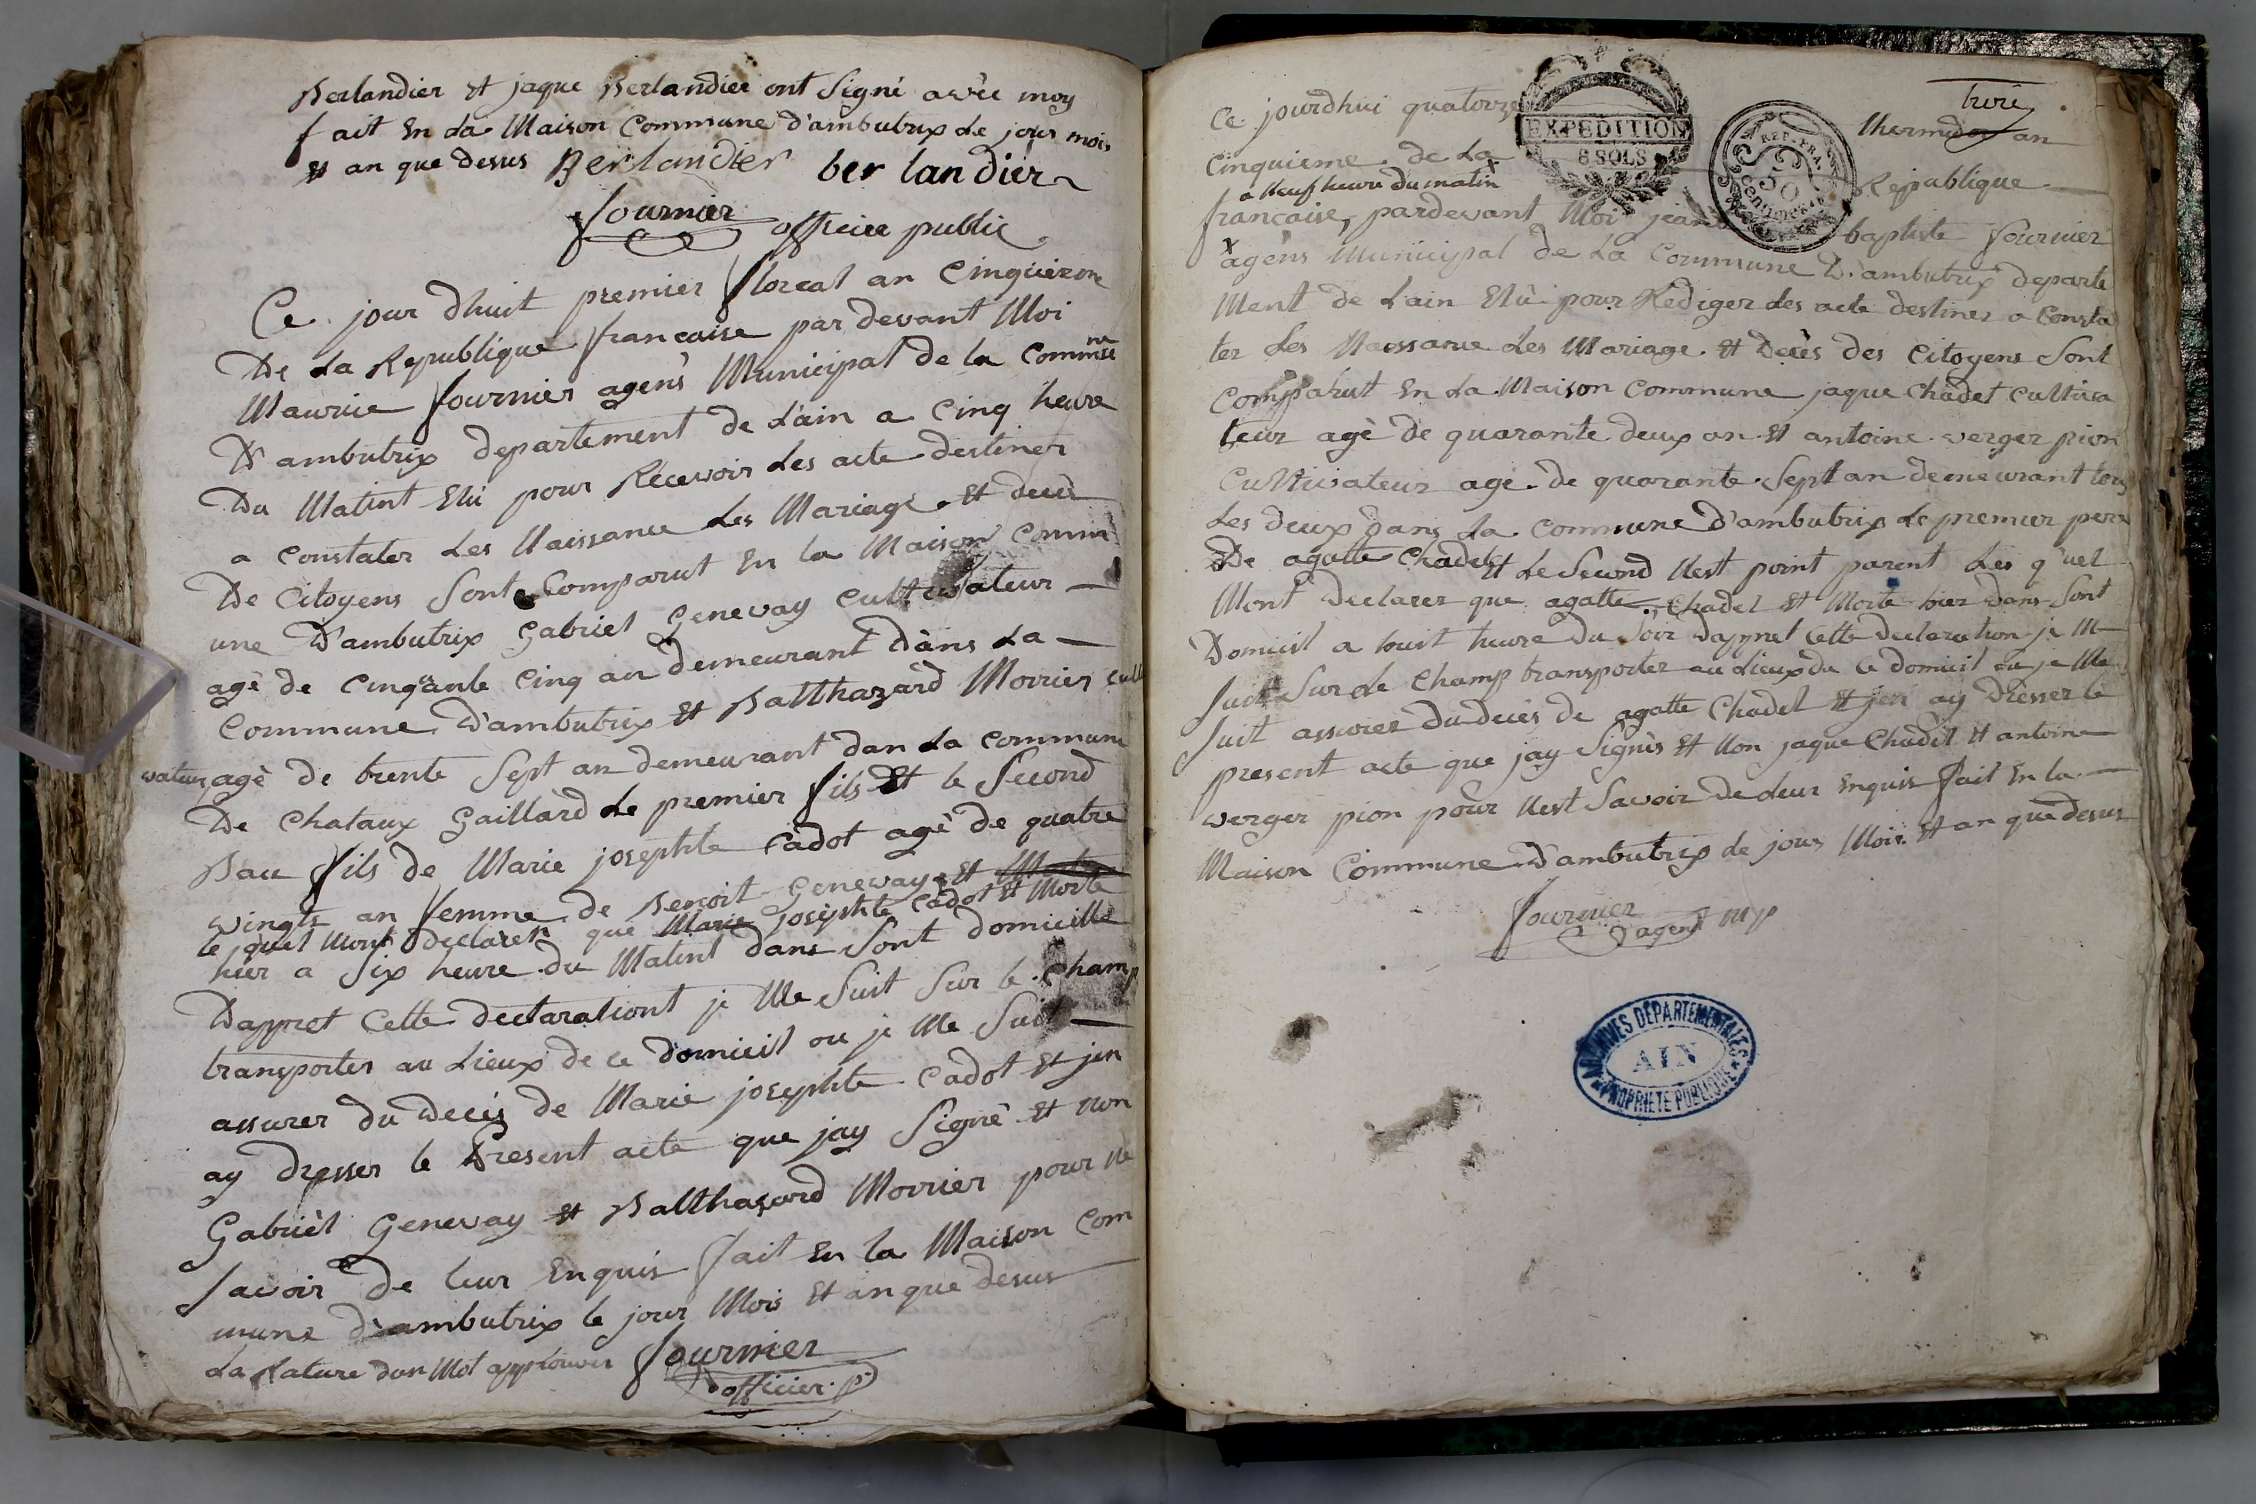 Berlandier et jaque Berlandier ont Signé avèc moy
fait En La Maison Commune d'ambutrix Le jour mois
et an que desus Berlandier ber lan dier
fournier officier public
Ce jour dhuit premier floreal an Cinquieme
De La Republique francaise par devant Moi
Maurice fournier agens Municipal de la Commune
D'ambutrix departement de Lain a Cinq heure
Du Matint Elu pour Recevoir Les acte destiner
a constater Les Naissance Les Mariage et decè
De Citoyens Sont Comparut En la Maison Comm
une D'ambutrix Gabriel Genevay Cultivateur
agè de Cinqante Cinq an demeurant Dans La
Commune D'ambutrix et Balthazard Morrier culti
vateur agè de trente Sept an demeurant dan La Commune
De Chataux Gaillard Le premier fils Et le Second
Bau fils de Marie josephte Cadot agè de quatre
vingts an femme de Benoit Genevay et
le quel Mont Declarer que Marie josephte Cadot et Morte
hier a Six heure du Matint dans Sont domicille
Dappret Cette declarationt je Me Suit Sur le Champ
transporter au Lieux de ce Domicil ou je Me Suit
assurer du decès de Marie josephte Cadot et jen
ay dresser le Present acte que jay Signè et non
Gabrièl Genevay et Balthasard Morrier pour ne
Savoir De leur Enquis fait En la Maison Com
mune d'ambutrix le jour Mois Et an que desus
La Rature dun Mot approuver fournier
officier p.
EXPEDITION
8 SOLS
REP. FRA.
50
Centimes
Ce jourdhui quatorze thermidor an
Cinquieme de La Republique
a Neuf heure du matin
francaise, pardevant Moi jean baptiste fournier
agens Municipal de La Commune D'ambutrix departe
Ment de Lain Elû pour Rediger Les acte destiner a Consta
ter Les Naissance Les Mariage et Decès des Citoyens Sont
Comparut En La Maison Commune jaque Chadet Cultiva
teur agè de quarante deux an et antoine verger pion
Cultivateur age de quarante Sept an demeurant tous
Les deux Dans La Commune d'ambutrix Le premier pere
De agatte Chadet et Le Second Nest point parent Les quel
Mont Declarer que agatte Chadet et Morte hier Dans Sont
Domicil a huit heure du Soir Dappret Cette declaration je M
Suit Sur Le Champ transporter au Lieux du Ce domicil ou je Me
Suit assurer du decès de agatte Chadet et jen ay Dresser le
present acte que jay Signès et Non jaque Chadet et antoine
verger pion pour Nest Savoir De Leur Enquis fait En La
Maison Commune D'ambutrix Le jour Mois et an que desus
fournier
agent mp
ARCHIVES DÉPARTEMENTALES
AIN
PROPRIÉTÉ PUBLIQUE